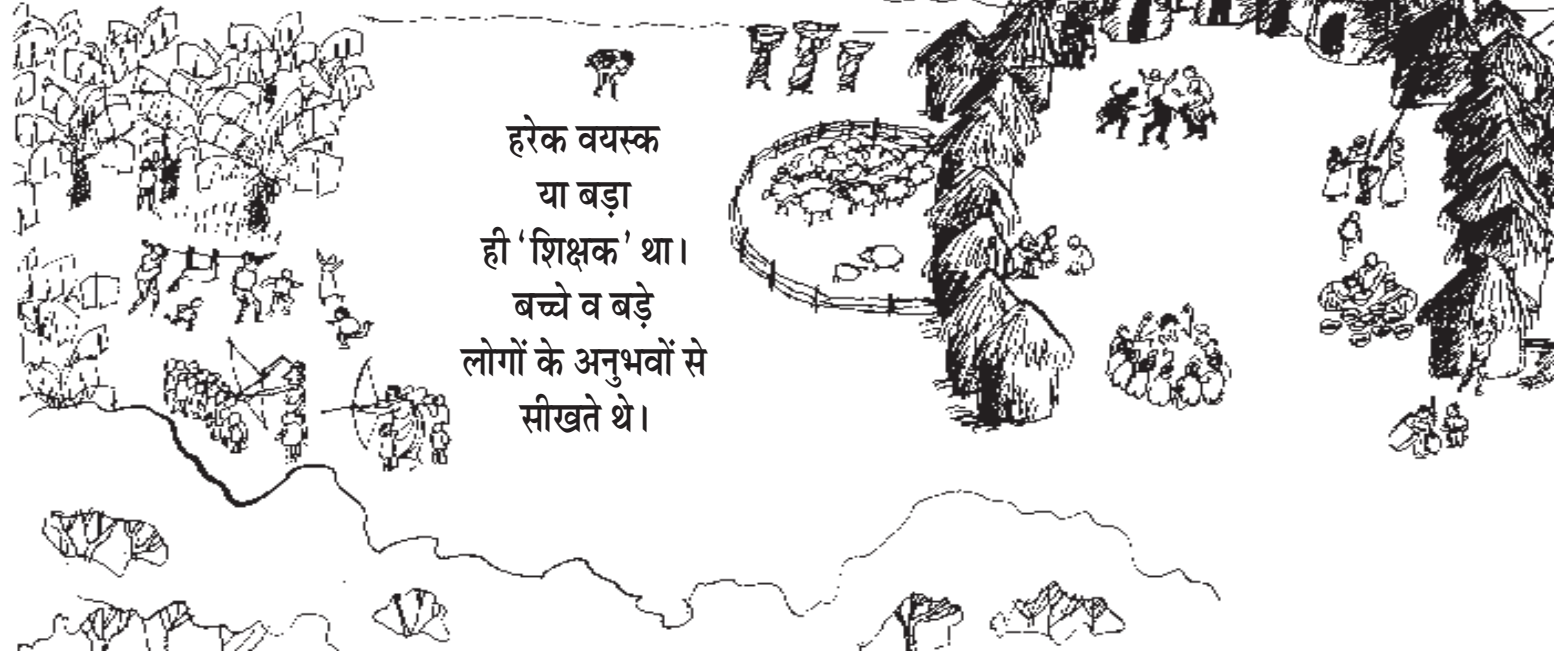 हरेक वयस्क
या बड़ा
ही ‘शिक्षक’ था।
बच्चे व बड़े
लोगों के अनुभवों से
सीखते थे।